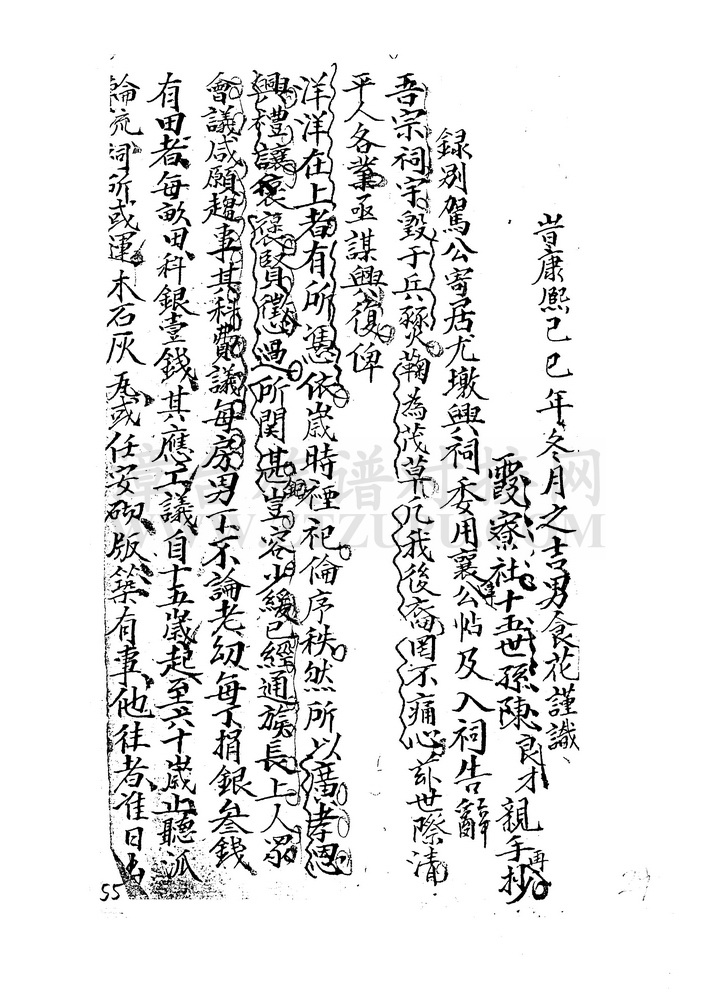 昔康熙己巳年冬月之吉男食花謹識
霞寮社十五世孫陳良才親手再抄
録别駕公寄居尤墩興祠委用襄公帖及入祠告辭
吾宗祠宇毀于兵燹鞠為茂草凡我後裔罔不痛心茲世際清
平人各業亟謀興復俾
洋洋在上者有所憑依歲時禋祀倫序秩然所以廣孝思
興禮讓褒賢懲過所關甚鉅豈容少緩已經通族長上人眾
會議咸願趨事其科費議每房男丁不論老幼每丁捐銀叁錢
有田者每畝田科銀壹錢其應工議自十五歲起至六十歲止聽派
輪流祠所或運木石灰瓦或任安砌版築有事他往者准日
55